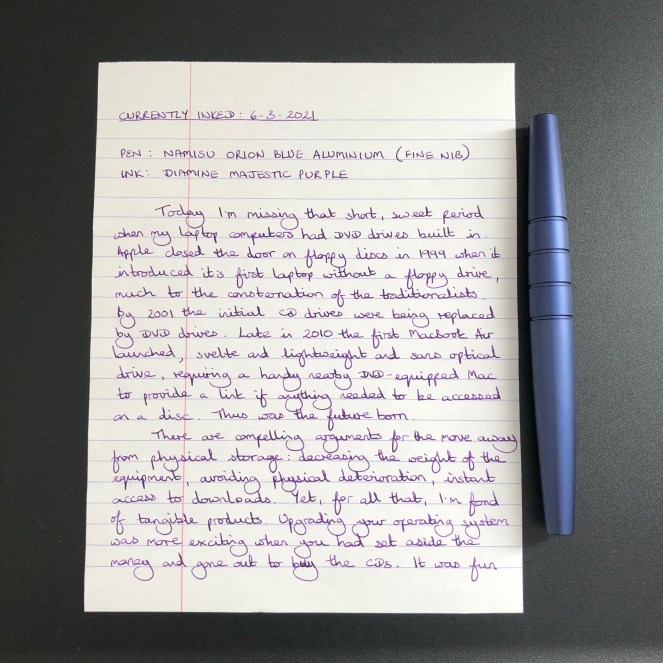 CURRENTLY INKED: 6-3-2021
PEN: NAMISU ORION BLUE ALUMINIUM (FINE NIB)
INK: DIAMINE MAJESTIC PURPLE
Today I'm missing that short, sweet period
when my laptop computers had DVD drives built in.
Apple closed the door on floppy discs in 1999 when it
introduced it's first laptop without a floppy drive,
much to the consternation of the traditionalists.
By 2001 the initial CD drives were being replaced
by DVD drives. Late in 2010 the first MacBook Air
launched, svelte and lightweight and sans optical
drive, requiring a handy nearby DVD-equipped Mac
to provide a link if anything needed to be accessed
on a disc. Thus was the future born.
There are compelling arguments for the move away
from physical storage: decreasing the weight of the
equipment, avoiding physical deterioration, instant
access to downloads. Yet, for all that, I'm fond
of tangible products. Upgrading your operating system
was more exciting when you had set aside the
money and gone out to buy the CDs. It was fun